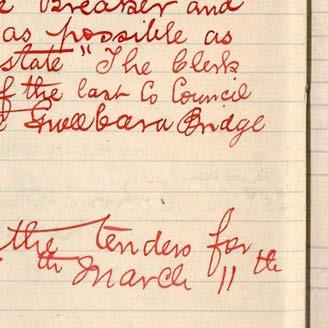 Breaker and
as possible as
state" The Clerk
f the last Co Council
Gweebara Bridge
the tenders for
th March 11th